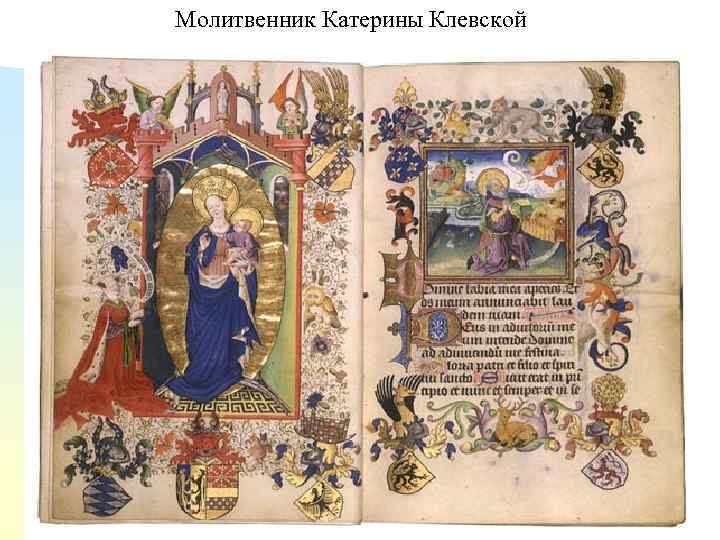 Молитвенник Катерины Клевской
Domine labia mea aperies. Et
os meum annunciabit lau
dem tuam.
Deus in adiutoriū me
um intende Domine
ad adiuvandū me festina
loria patri et filio et spiri
tui sancto Sicut erat in prī
cipio et nunc et semper et in se